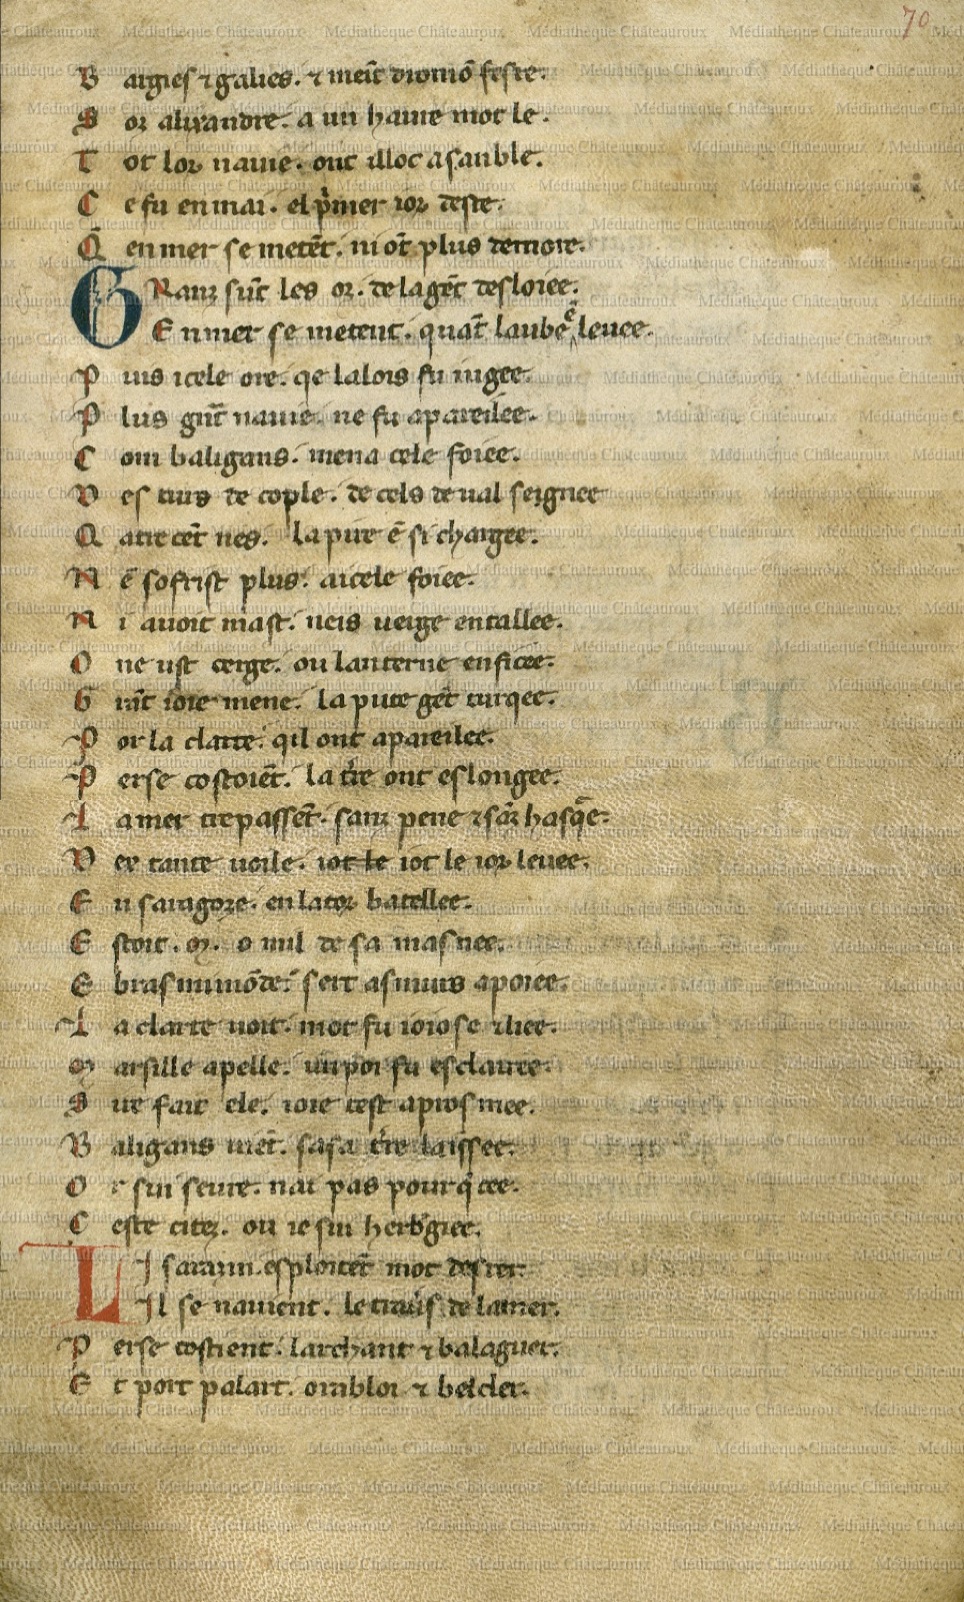 70
B argies ⁊ galies. ⁊ meīt dromō feste.
S or alixandre. a un haute mot le.
T ot lor nauie. ont illoc asanble.
C e fu en mai. el p̄mer ior deste.
Q̄ en mer se metēt. ni ot̄ plus demore.
G Ranz sūt les oz. de la gēt desloiee.
E n mer se metent. quāt laube ē leuee.
P uis icele ore. qe la lois fu iugee.
P lus gnt̄ nauie. ne fu apareilee.
C om baligans. mena cele foiee.
D es turs de cople. de cels de ual seignee
Q atre cēt nes. la pire ē si chargee.
N ē sofrist plus. a icele foiee.
N i auoit mast. neis uerge entallee.
O ne ust cerge. ou lanterne enficee.
G rāt ioie mene. la pute gēt turqee.
P or la clarte. qil ont apareilee.
P erse costoiēt. la tr̄e ont eslongee.
L a mer trepassēt. sanz pene ⁊ sāz hasq̄e.
D ex tante uoile. iot le iot le ior leuee.
E n saragoze. en la tor batellee.
E stoit. m. o mil de sa masnee.
E bras mimōde. sert as murs apoiee.
L a clarte uoit. mot fu ioiose ⁊ liee.
M arsille apelle. un poi fu esclairee.
S ire fait ele. ioie test aprosmee.
B aligans uiēt. sa sa tr̄e laissee.
O r sui seure. nai pas pour q̄ cee.
C este citez. ou ie sui herb̄giee.
L I sarazin esploitēt mot desrer
Il se nauient. le trau̾s de la mer.
P erse costient. larchant ⁊ balaguer.
E t port palart. oribloi ⁊ belcler.